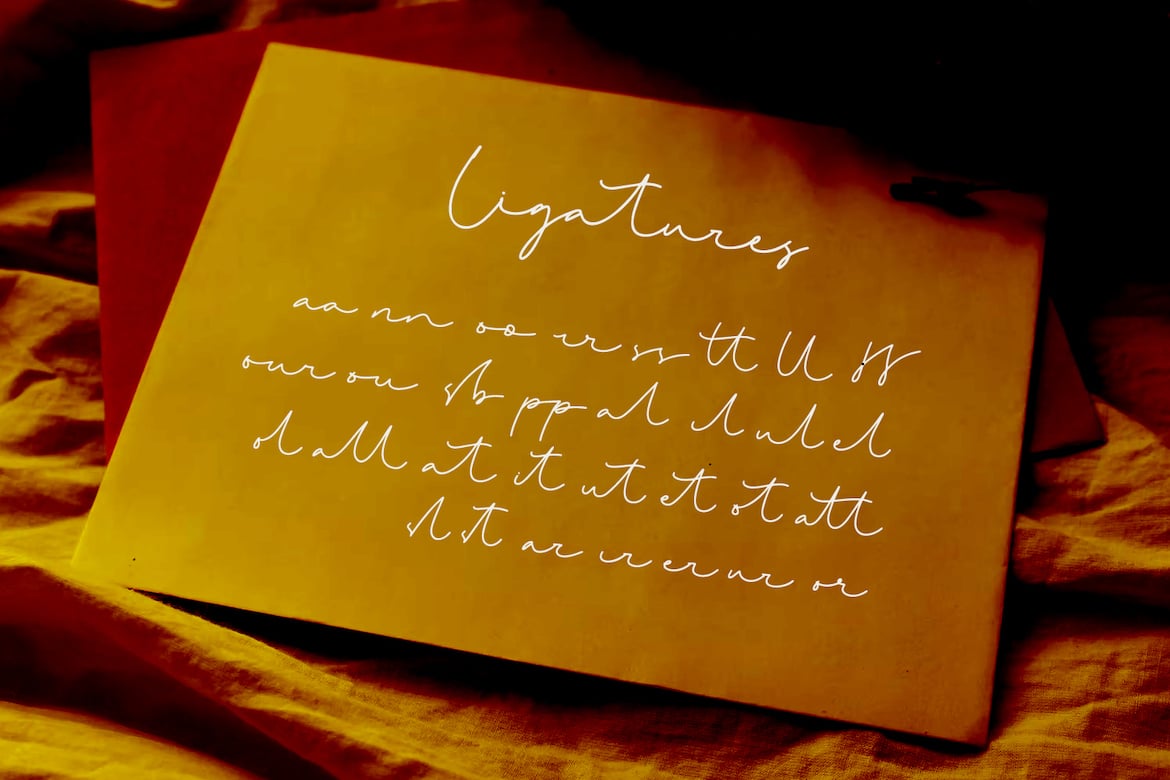 Ligatures
aa nn oo rr ss tt ll ff
our ou pp al il ul el
ol all at it ut et ot att
sl st ar ir er ur or